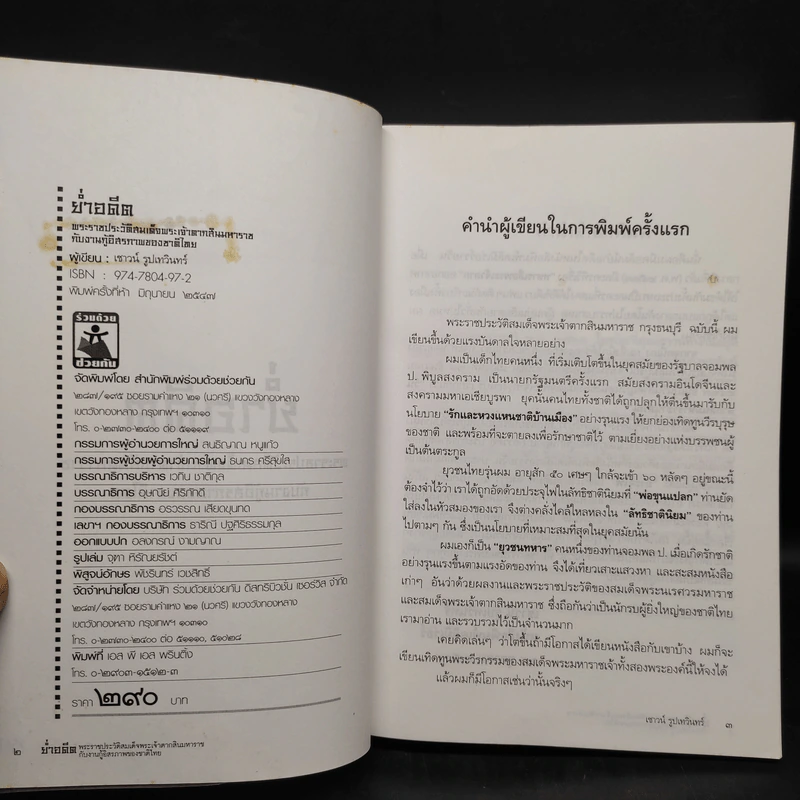 ย่ำอดีต
พระราชประวัติสมเด็จพระเจ้าตากสินมหาราช
กับงานกู้อิสรภาพของชาติไทย
ผู้เขียน : เชาวน์ รูปเทวินทร์
ISBN : 974-7804-97-2
พิมพ์ครั้งที่ห้า มิถุนายน ๒๕๔๗
ร่วมด้วย
ช่วยกัน
จัดพิมพ์โดย สำนักพิมพ์ร่วมด้วยช่วยกัน
๒๘๔๗/๑๙๕ ซอยรามคำแหง ๒๑ (นวศรี) แขวงวังทองหลาง
เขตวังทองหลาง กรุงเทพฯ ๑๐๓๑๐
โทร. ๐-๒๗๓๐-๒๔๐๐ ต่อ ๕๑๑๑๙
กรรมการผู้อำนวยการใหญ่ สนธิญาณ หนูแก้ว
กรรมการผู้ช่วยผู้อำนวยการใหญ่ ธนกร ศรีสุขใส
บรรณาธิการบริหาร เวทิน ชาติกุล
บรรณาธิการ อุษณีย์ ศิริภักดี
กองบรรณาธิการ อรวรรณ เสียดขุนทด
เลขาฯ กองบรรณาธิการ ธาริณี ปฐศิริธรรมกุล
ออกแบบปก อลงกรณ์ งามญาณ
รูปเล่ม จุฑา หิรัณยรัชต์
พิสูจน์อักษร พัชรินทร์ เวชสิทธิ์
จัดจำหน่ายโดย บริษัท ร่วมด้วยช่วยกัน ดิสทริบิวชั่น เซอร์วิส จำกัด
๒๘๔๗/๑๙๕ ซอยรามคำแหง ๒๑ (นวศรี) แขวงวังทองหลาง
เขตวังทองหลาง กรุงเทพฯ ๑๐๓๑๐
โทร. ๐-๒๗๓๐-๒๔๐๐ ต่อ ๕๑๑๑๐, ๕๑๐๒๘
พิมพ์ที่ เอส พี เอส พริ้นติ้ง
โทร. ๐-๒๙๐๓-๑๕๑๒-๓
ราคา ๒๙๐ บาท
๒ ย่ำอดีต พระราชประวัติสมเด็จพระเจ้าตากสินมหาราช
กับงานกู้อิสรภาพของชาติไทย
คำนำผู้เขียนในการพิมพ์ครั้งแรก
พระราชประวัติสมเด็จพระเจ้าตากสินมหาราช กรุงธนบุรี ฉบับนี้ ผม
เขียนขึ้นด้วยแรงบันดาลใจหลายอย่าง
ผมเป็นเด็กไทยคนหนึ่ง ที่เริ่มเติบโตขึ้นในยุคสมัยของรัฐบาลจอมพล
ป. พิบูลสงคราม เป็นนายกรัฐมนตรีครั้งแรก สมัยสงครามอินโดจีนและ
สงครามมหาเอเชียบูรพา ยุคนั้นคนไทยทั้งชาติได้ถูกปลุกให้ตื่นขึ้นมารับกับ
นโยบาย "รักและหวงแหนชาติบ้านเมือง" อย่างรุนแรง ให้ยกย่องเทิดทูนวีรบุรุษ
ของชาติ และพร้อมที่จะตายลงเพื่อรักษาชาติไว้ ตามเยี่ยงอย่างแห่งบรรพชนผู้
เป็นต้นตระกูล
ยุวชนไทยรุ่นผม อายุสัก ๕๐ เศษๆ ใกล้จะเข้า ๖๐ หลัดๆ อยู่ขณะนี้
ต้องจำไว้ว่า เราได้ถูกอัดด้วยประจุไฟในลัทธิชาตินิยมที่ "พ่อขุนแปลก" ท่านยัด
ใส่ลงในหัวสมองของเรา จึงต่างคลั่งไคล้ใหลหลงใน "ลัทธิชาตินิยม" ของท่าน
ไปตามๆ กัน ซึ่งเป็นนโยบายที่เหมาะสมที่สุดในยุคสมัยนั้น
ผมเองก็เป็น "ยุวชนทหาร" คนหนึ่งของท่านจอมพล ป. เมื่อเกิดรักชาติ
อย่างรุนแรงขึ้นตามแรงอัดของท่าน จึงได้เที่ยวเสาะแสวงหา และสะสมหนังสือ
เก่าๆ อันว่าด้วยผลงานและพระราชประวัติของสมเด็จพระนเรศวรมหาราช
และสมเด็จพระเจ้าตากสินมหาราช ซึ่งถือกันว่าเป็นนักรบผู้ยิ่งใหญ่ของชาติไทย
เรามาอ่าน และรวบรวมไว้เป็นจำนวนมาก
เคยคิดเล่นๆ ว่าโตขึ้นถ้ามีโอกาสได้เขียนหนังสือกับเขาบ้าง ผมก็จะ
เขียนเทิดทูนพระวีรกรรมของสมเด็จพระมหาราชเจ้าทั้งสองพระองค์นี้ให้จงได้
แล้วผมก็มีโอกาสเช่นว่านั้นจริงๆ
เชาวน์ รูปเทวินทร์ ๓